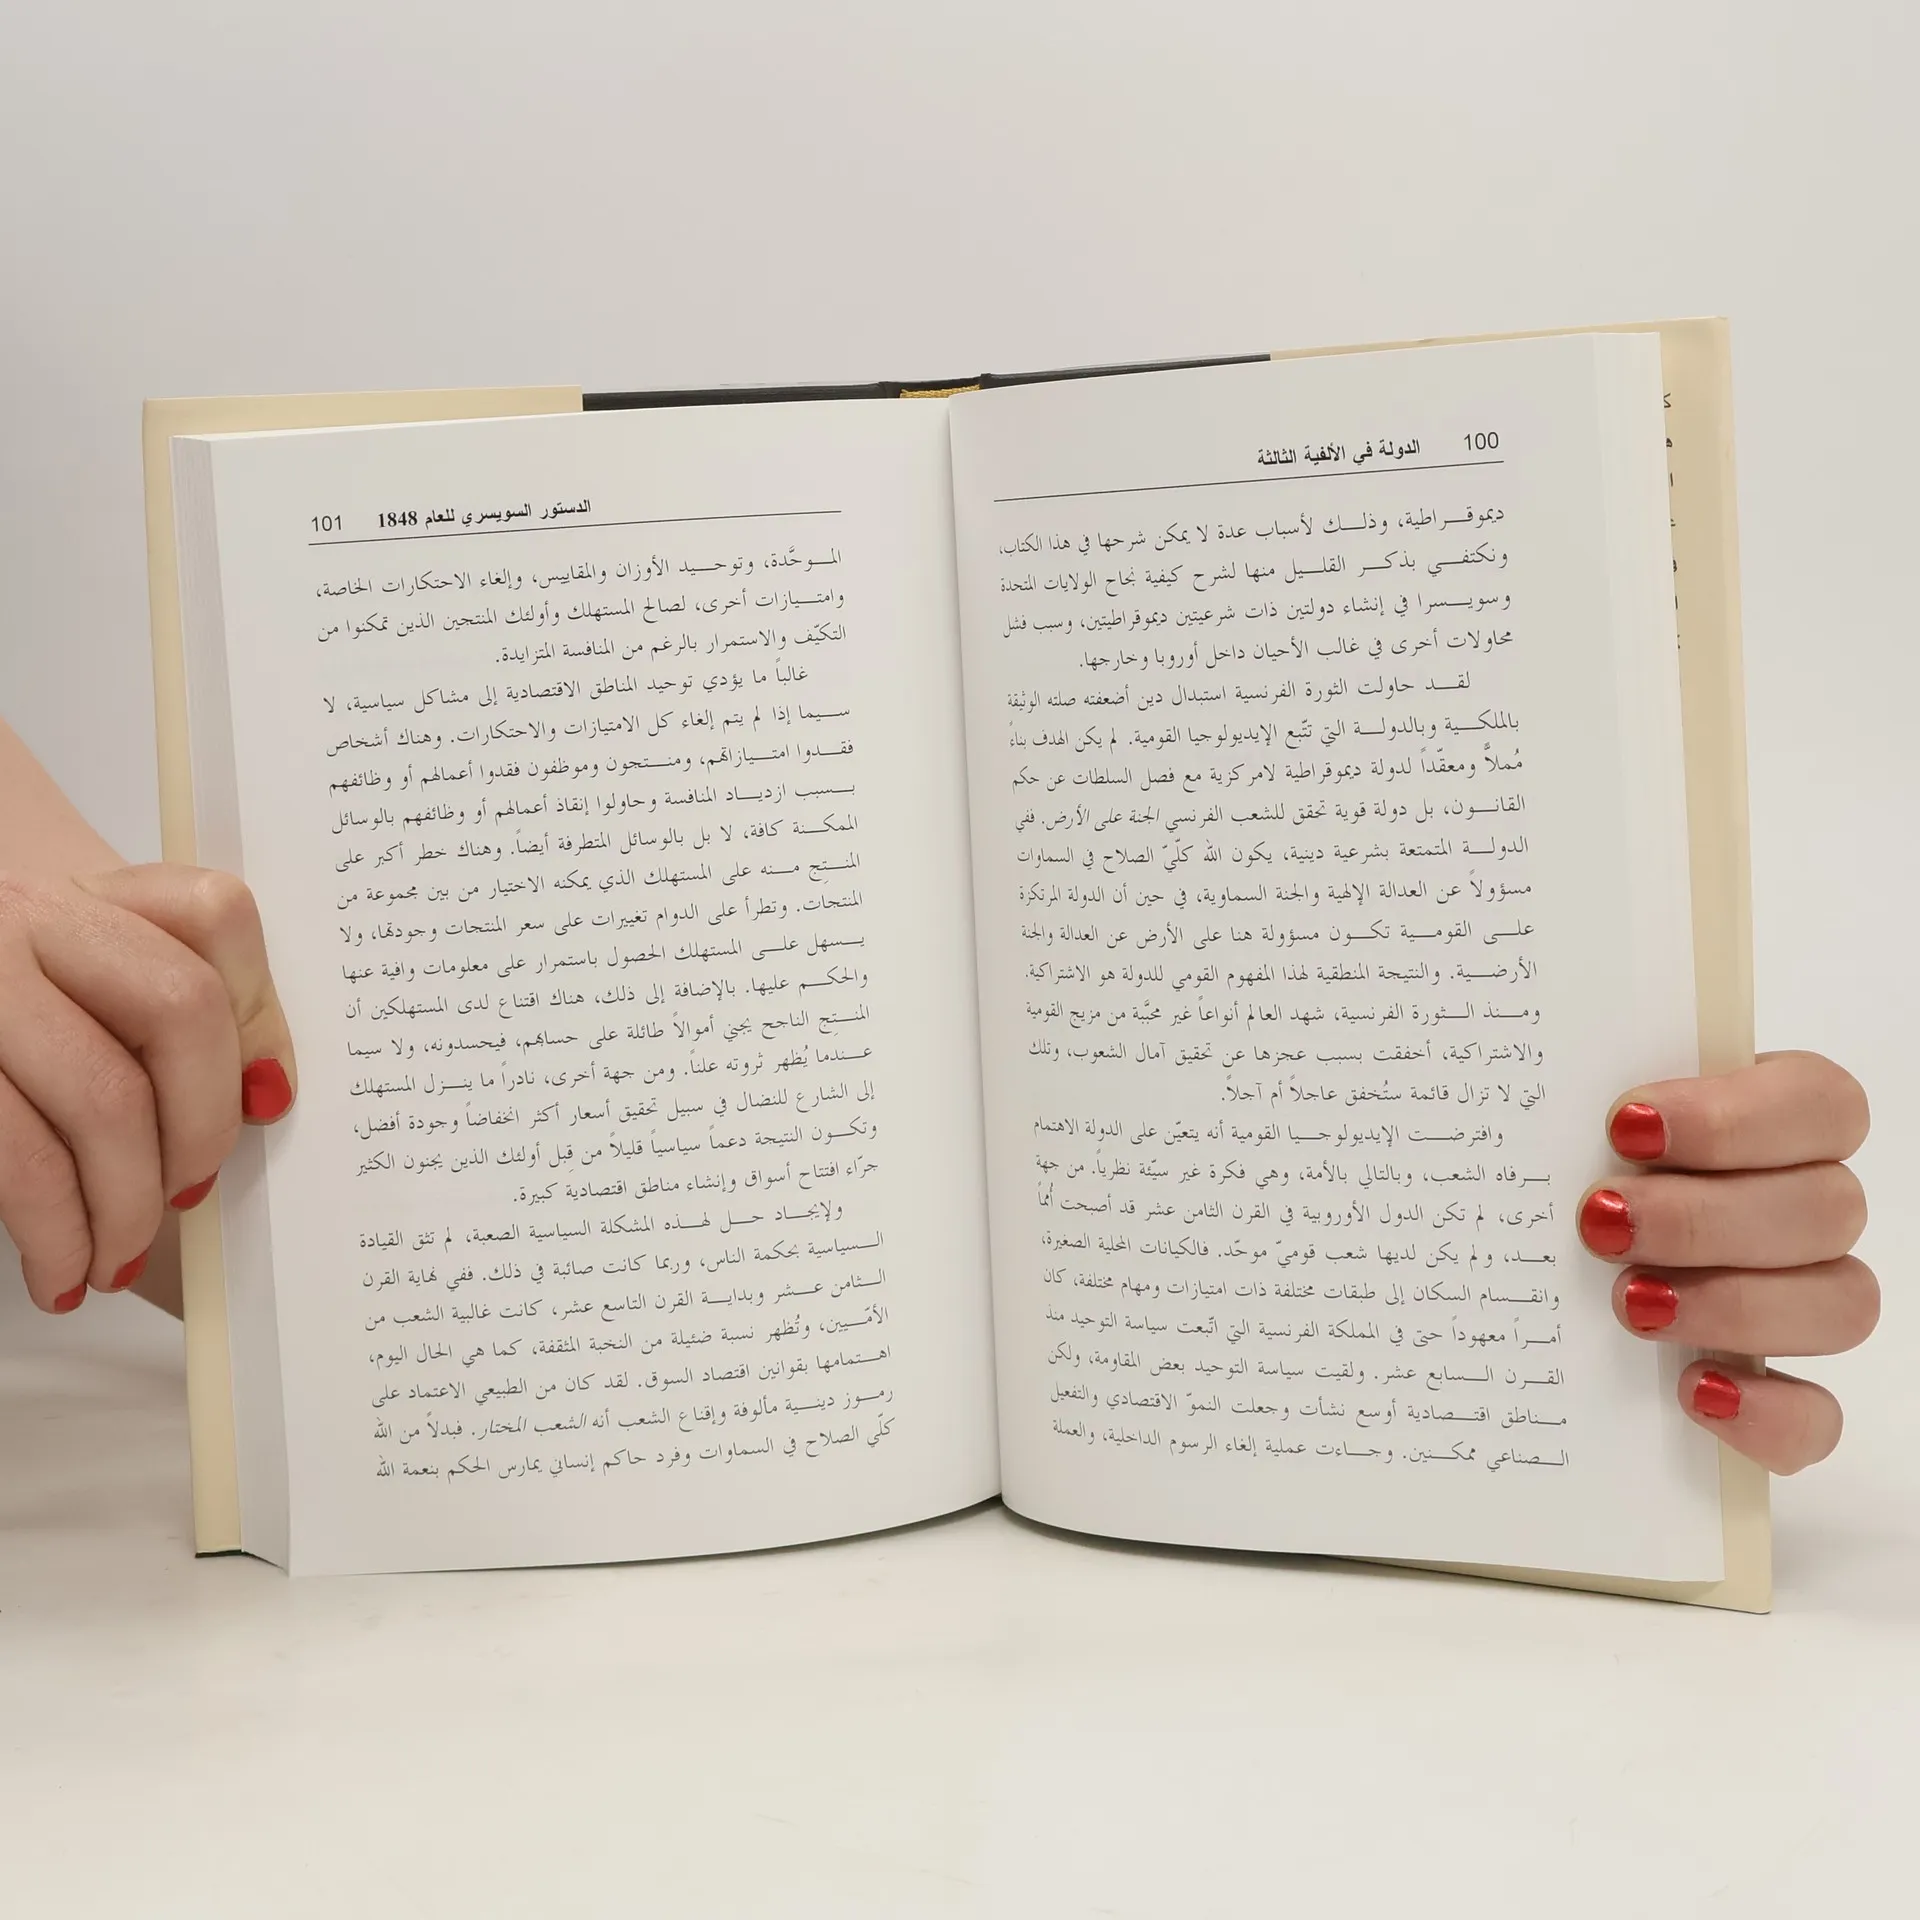 100 الدولة في الألفية الثالثة
ديموقراطية، وذلك لأسباب عدة لا يمكن شرحها في هذا الكتاب،
ونكتفي بذكر القليل منها لشرح كيفية نجاح الولايات المتحدة
وسويسرا في إنشاء دولتين ذات شرعيتين ديموقراطيتين، وسبب فشل
محاولات أخرى في غالب الأحيان داخل أوروبا وخارجها.
لقد حاولت الثورة الفرنسية استبدال دين أضعفته صلته الوثيقة
بالملكية وبالدولة التي تتّبع الإيديولوجيا القومية. لم يكن الهدف بناءً
مُملاًّ ومعقّداً لدولة ديموقراطية لامركزية مع فصل السلطات عن حكم
القانون، بل دولة قوية تحقق للشعب الفرنسي الجنة على الأرض. ففي
الدولة المتمتعة بشرعية دينية، يكون الله كلّيّ الصلاح في السماوات
مسؤولاً عن العدالة الإلهية والجنة السماوية، في حين أن الدولة المرتكزة
على القومية تكون مسؤولة هنا على الأرض عن العدالة والجنة
الأرضية. والنتيجة المنطقية لهذا المفهوم القومي للدولة هو الاشتراكية.
ومنذ الثورة الفرنسية، شهد العالم أنواعاً غير محبَّبة من مزيج القومية
والاشتراكية، أخفقت بسبب عجزها عن تحقيق آمال الشعوب، وتلك
التي لا تزال قائمة ستُخفق عاجلاً أم آجلاً.
وافترضت الإيديولوجيا القومية أنه يتعيّن على الدولة الاهتمام
برفاه الشعب، وبالتالي بالأمة، وهي فكرة غير سيّئة نظرياً. من جهة
أخرى، لم تكن الدول الأوروبية في القرن الثامن عشر قد أصبحت أُمماً
بعد، ولم يكن لديها شعب قوميّ موحّد. فالكيانات المحلية الصغيرة،
وانقسام السكان إلى طبقات مختلفة ذات امتيازات ومهام مختلفة، كان
أمراً معهوداً حتى في المملكة الفرنسية التي اتّبعت سياسة التوحيد منذ
القرن السابع عشر. ولقيت سياسة التوحيد بعض المقاومة، ولكن
مناطق اقتصادية أوسع نشأت وجعلت النموّ الاقتصادي والتفعيل
الصناعي ممكنين. وجاءت عملية إلغاء الرسوم الداخلية، والعملة
الدستور السويسري للعام 1848 101
الموحَّدة، وتوحيد الأوزان والمقاييس، وإلغاء الاحتكارات الخاصة،
وامتيازات أخرى، لصالح المستهلك وأولئك المنتجين الذين تمكنوا من
التكيّف والاستمرار بالرغم من المنافسة المتزايدة.
غالباً ما يؤدي توحيد المناطق الاقتصادية إلى مشاكل سياسية، لا
سيما إذا لم يتم إلغاء كل الامتيازات والاحتكارات. وهناك أشخاص
فقدوا امتيازاتهم، ومنتجون وموظفون فقدوا أعمالهم أو وظائفهم
بسبب ازدياد المنافسة وحاولوا إنقاذ أعمالهم أو وظائفهم بالوسائل
الممكنة كافة، لا بل بالوسائل المتطرفة أيضاً. وهناك خطر أكبر على
المنتِج منه على المستهلك الذي يمكنه الاختيار من بين مجموعة من
المنتجات. وتطرأ على الدوام تغييرات على سعر المنتجات وجودتها، ولا
يسهل على المستهلك الحصول باستمرار على معلومات وافية عنها
والحكم عليها. بالإضافة إلى ذلك، هناك اقتناع لدى المستهلكين أن
المنتِج الناجح يجني أموالاً طائلة على حسابهم، فيحسدونه، ولا سيما
عندما يُظهر ثروته علناً. ومن جهة أخرى، نادراً ما ينزل المستهلك
إلى الشارع للنضال في سبيل تحقيق أسعار أكثر انخفاضاً وجودة أفضل،
وتكون النتيجة دعماً سياسياً قليلاً من قِبل أولئك الذين يجنون الكثير
جرّاء افتتاح أسواق وإنشاء مناطق اقتصادية كبيرة.
ولإيجاد حل لهذه المشكلة السياسية الصعبة، لم تثق القيادة
السياسية بحكمة الناس، وربما كانت صائبة في ذلك. ففي نهاية القرن
الثامن عشر وبداية القرن التاسع عشر، كانت غالبية الشعب من
الأمّيين، وتُظهر نسبة ضئيلة من النخبة المثقفة، كما هي الحال اليوم،
اهتمامها بقوانين اقتصاد السوق. لقد كان من الطبيعي الاعتماد على
رموز دينية مألوفة وإقناع الشعب أنه الشعب المختار. فبدلاً من الله
كلّي الصلاح في السماوات وفرد حاكم إنساني يمارس الحكم بنعمة الله